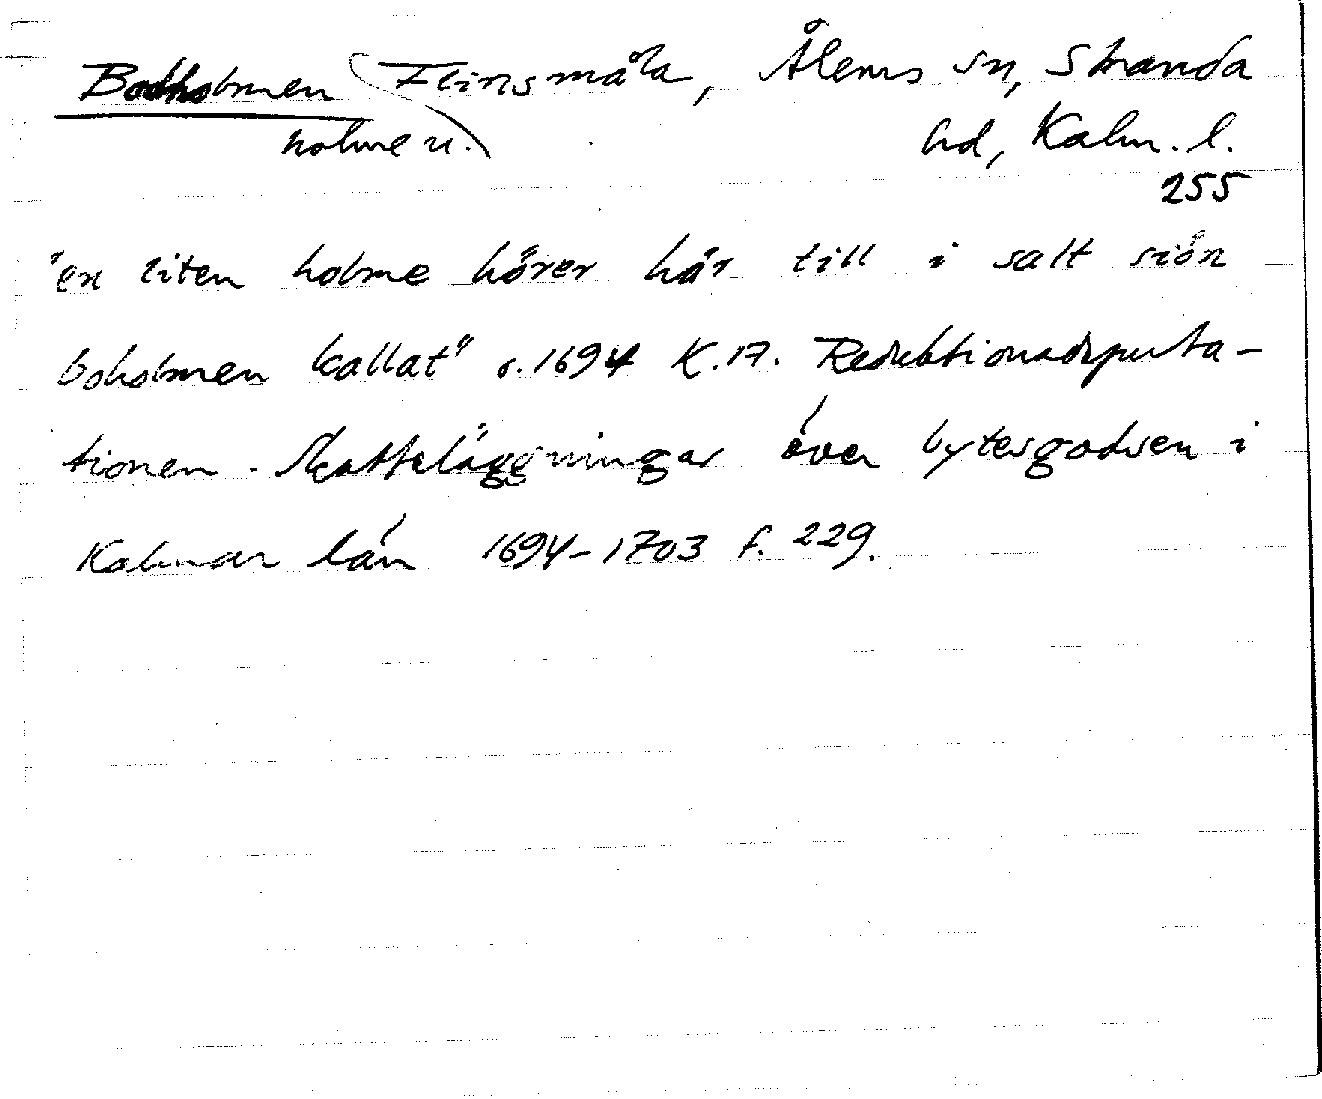 Bodholmen Flinsmåla, Ålems sn, Stranda
holme u. hd, Kalm. l.
255
"en liten holme hörer här till i salt siön
boholmen kallat" r. 1694 K. 17. Reduktionsdeputa-
tionen. Skatteläggningar över bytesgodsen i
Kalmar län 1694-1703 f. 229.